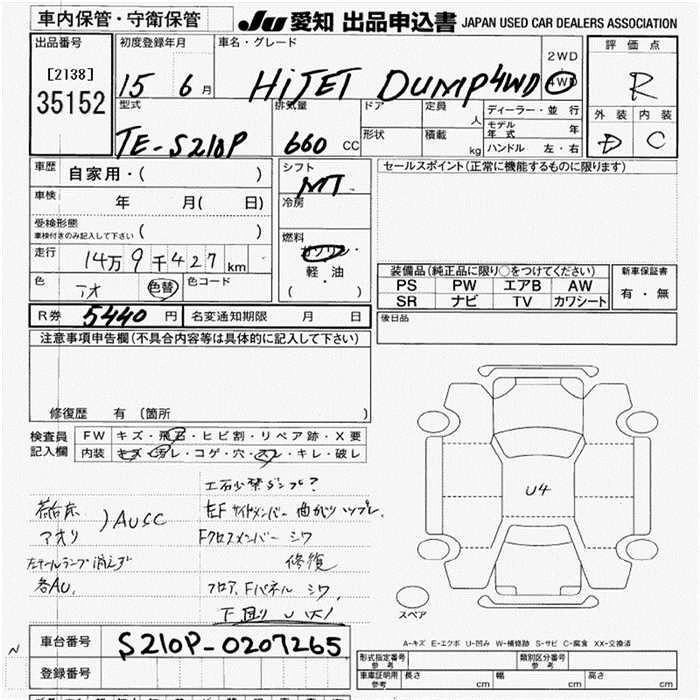 車内保管・守衛保管
JU 愛知 出品申込書 JAPAN USED CAR DEALERS ASSOCIATION
出品番号
[2138]
35152
初度登録年月
15 6 月
車名・グレード
HiJET DUMP 4WD
2WD
4WD
評価点
R
外装 内装
D C
型式
TE-S210P
排気量
660 CC
ドア
形状
定員
人
積載
kg
ディーラー・並行
モデル年式 年
ハンドル 左・右
車歴
自家用・( )
車検
年 月( 日)
受検形態
車検付きのみ記入して下さい ( )
走行
14万 9千 427 km
色
アオ 色替
色コード
シフト
MT
冷房
燃料
ガソリン・
軽・油
( )
セールスポイント(正常に機能するものに限ります)
装備品(純正品に限り○をつけてください)
PS PW エアB AW
SR ナビ TV カワシート
新車保証書
有・無
R券 5440 円
名変通知期限 月 日
後日品
注意事項申告欄(不具合内容等は具体的に記入して下さい)
修復歴 有 (箇所 )
検査員記入欄
FW キズ・飛石・ヒビ割・リペア跡・X要
内装 キズ・汚レ・コゲ・穴・スレ・キレ・破レ
土砂禁ダンプ?
荷台床
アオリ
)AUSC
左テールランプ消えず
各AU.
Fクロスメンバー シワ
修復
フロア、Fパネル シワ.
下回り U 大
U4
スペア
A-キズ E-エクボ U-凹み W-補修跡 S-サビ C-腐食 XX-交換済
車台番号
S210P-0207265
登録番号
形式指定番号 参考
類別区分番号 参考
車庫証明用 参考
長さ cm 幅 cm 高さ cm